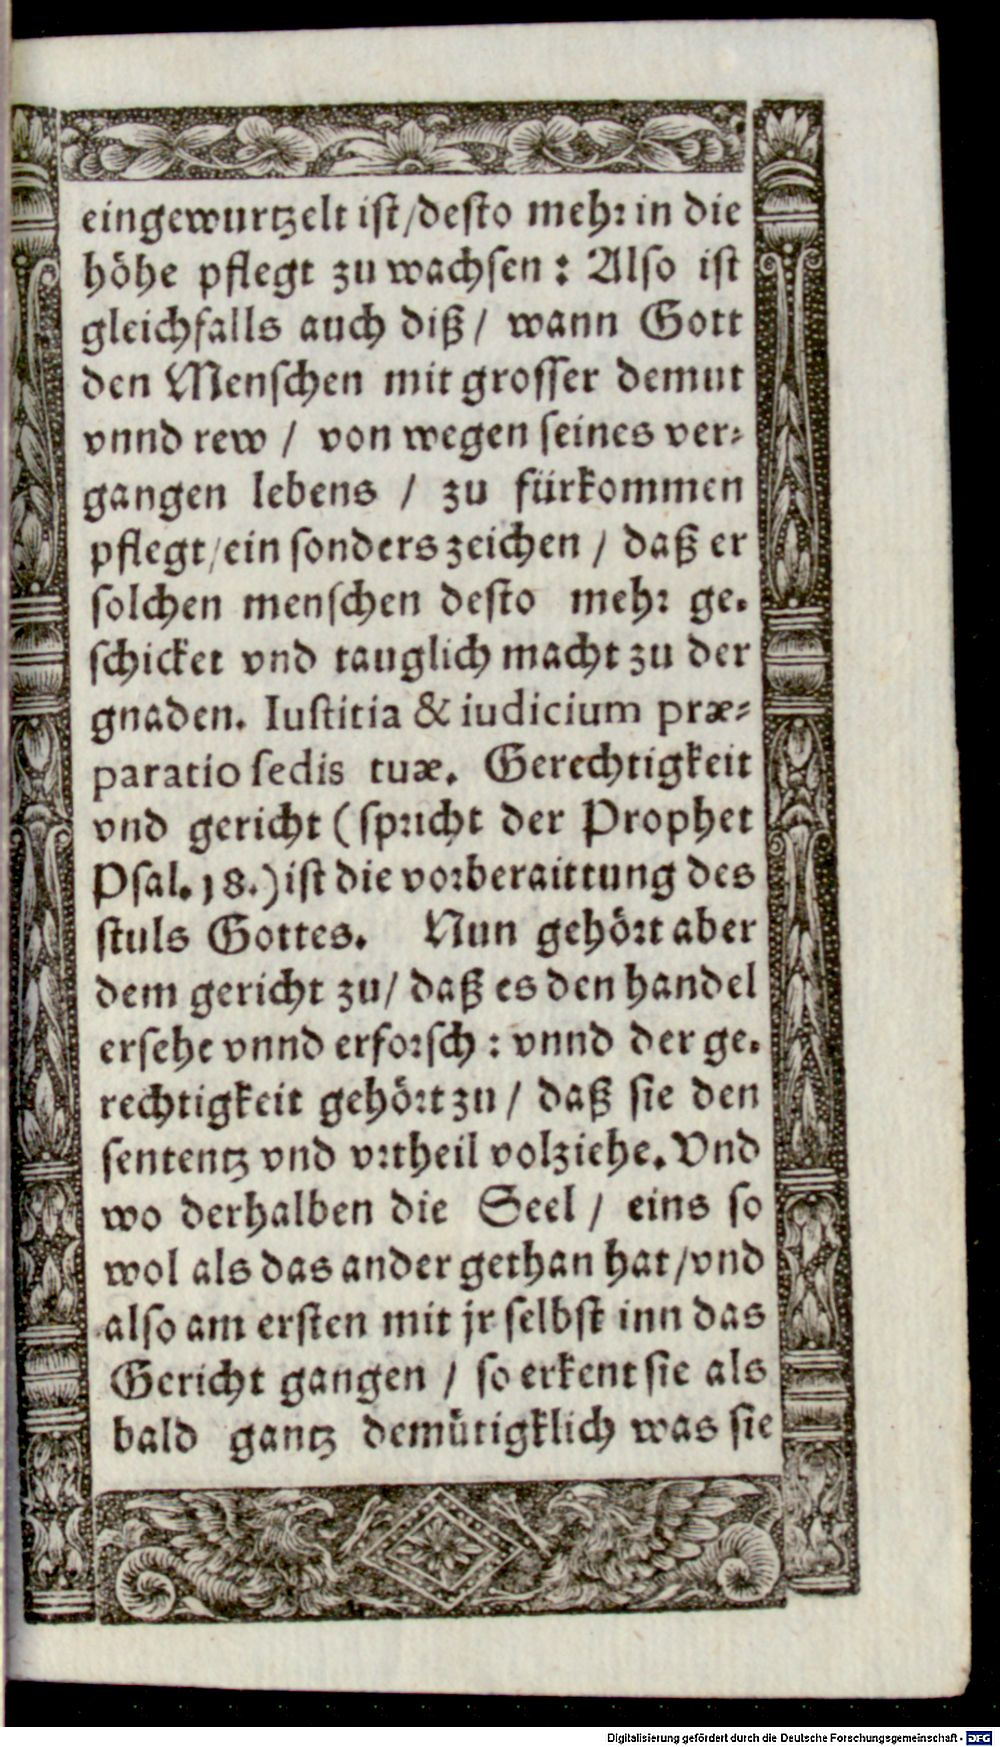 eingewurtzelt ist/desto mehr in die
höhe pflegt zu wachsen : Also ist
gleichfalls auch diß / wann Gott
den Menschen mit grosser demut
vnnd rew / von wegen seines ver-
gangen lebens / zu fürkommen
pflegt/ein sonders zeichen / daß er
solchen menschen desto mehr ge-
schicket vnd tauglich macht zu der
gnaden. Iustitia & iudicium præ-
paratio sedis tuæ. Gerechtigkeit
vnd gericht (spricht der Prophet
Psal. 18.) ist die vorberaittung des
stuls Gottes. Nun gehört aber
dem gericht zu/ daß es den handel
ersehe vnnd erforsch : vnnd der ge-
rechtigkeit gehört zu / daß sie den
sententz vnd vrtheil volziehe. Vnd
wo derhalben die Seel / eins so
wol als das ander gethan hat/vnd
also am ersten mit jr selbst inn das
Gericht gangen / so erkent sie als
bald gantz demütigklich was sie
Digitalisierung gefördert durch die Deutsche Forschungsgemeinschaft - DFG